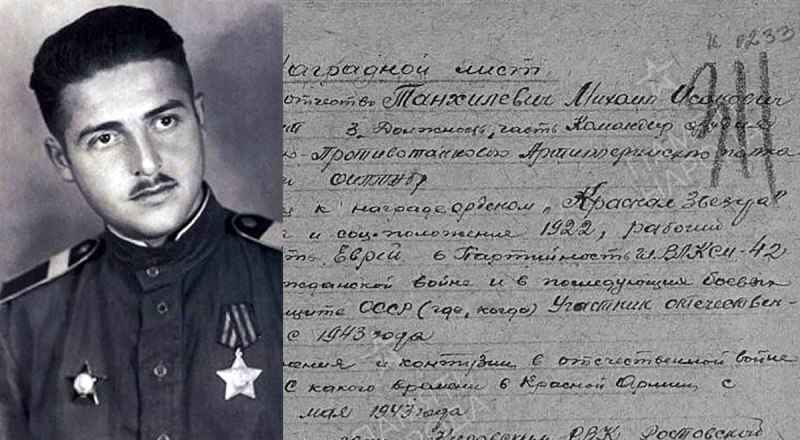 к 0233
Наградной лист
отчество Танхилевич Михаил Исакович
3. Должность, часть Командир орудия
Противотанкового Артиллерийского полка
к награде орденом „Красная Звезда"
и соц. положение 1922, рабочий
ть Еврей 6 Партийность чл. ВЛКСМ-42
жданской войне и в последующих боевых
щите СССР (где, когда) Участник отечествен-
с 1943 года
нения и контузии в отечественной войне
С какого времени в Красной Армии, с
мая 1943 года
РВК Ростовской